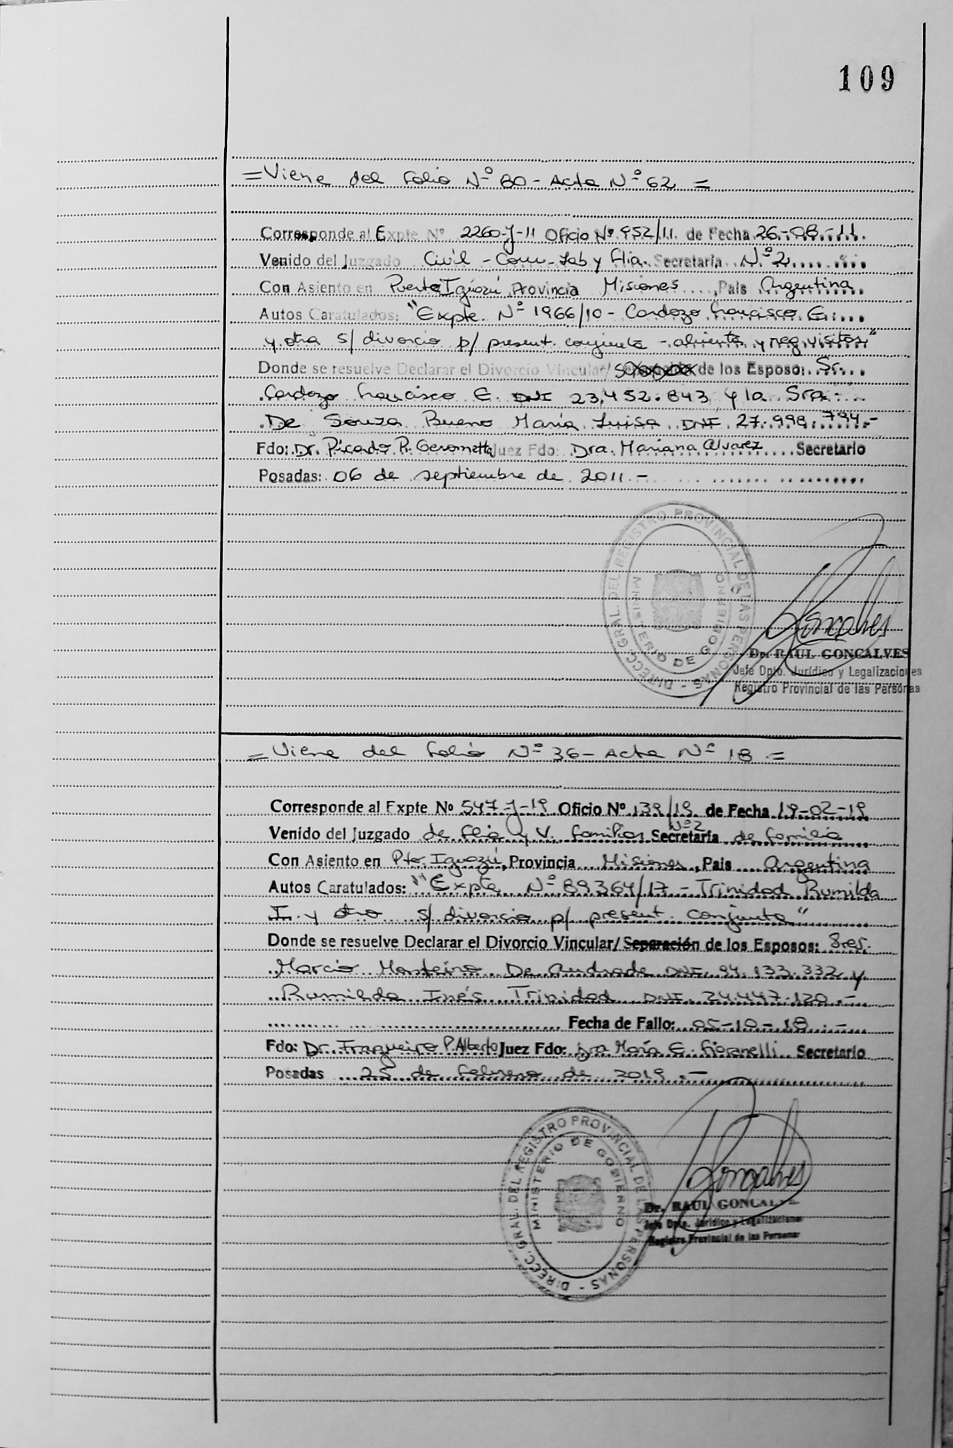 109
= Viene del folio Nº 80 - Acta Nº 62 =
Corresponde al Expte Nº 2260-J-11 Oficio Nº 952/11. de Fecha 26-08-11.
Venido del Juzgado Civil - Com - Lab y flia. Secretaria Nº 2
Con Asiento en Puerto Iguazú, Provincia Misiones, Pais Argentina
Autos Caratulados: "Expte. Nº 1966/10 - Cardozo Francisco E.
y otra s/ divorcio p/ present. conjunta - alimentos y reg. visitas"
Donde se resuelve Declarar el Divorcio Vincular/ de los Esposo: Sr.
Cardozo Francisco E. DNI 23.452.843 y la Sra.
De Souza Bueno María Luisa DNI 27.998.794.-
Fdo: Dr. Ricardo R. Gerometta Juez Fdo: Dra. Mariana Alvarez Secretario
Posadas: 06 de septiembre de 2011.-
DIRECC. GRAL. DEL REGISTRO PROVINCIAL DE LAS PERSONAS -
MINISTERIO DE GOBIERNO
Dr. RAUL GONCALVES
Jefe Dpto. Jurídico y Legalizaciones
Registro Provincial de las Personas
= Viene del folio Nº 36 - Acta Nº 18 =
Corresponde al Expte Nº 547-J-19 Oficio Nº 139/19 de Fecha 19-02-19
Venido del Juzgado de flia y V. familiar Secretaria Nº 2 de familia
Con Asiento en Pto. Iguazú, Provincia Misiones, Pais Argentina
Autos Caratulados: "Expte Nº 89364/17 - Trinidad Rumilda
I. y otro s/ divorcio p/ present. conjunta"
Donde se resuelve Declarar el Divorcio Vincular/ Separación de los Esposos: Sres.
Marcio Monteiro De Andrade DNI. 94.133.332 y
Rumilda Inés Trinidad DNI 24.447.120.-
Fecha de Fallo: 05-10-18.-
Fdo: Dr. Fragueiro P. Alberto Juez Fdo: Dra María E. Secretario
Posadas 25 de febrero de 2019.-
DIRECC. GRAL. DEL REGISTRO PROVINCIAL DE LAS PERSONAS -
MINISTERIO DE GOBIERNO
Dr. RAUL GONCALVES
Jefe Dpto. Jurídico y Legalizaciones
Registro Provincial de las Personas